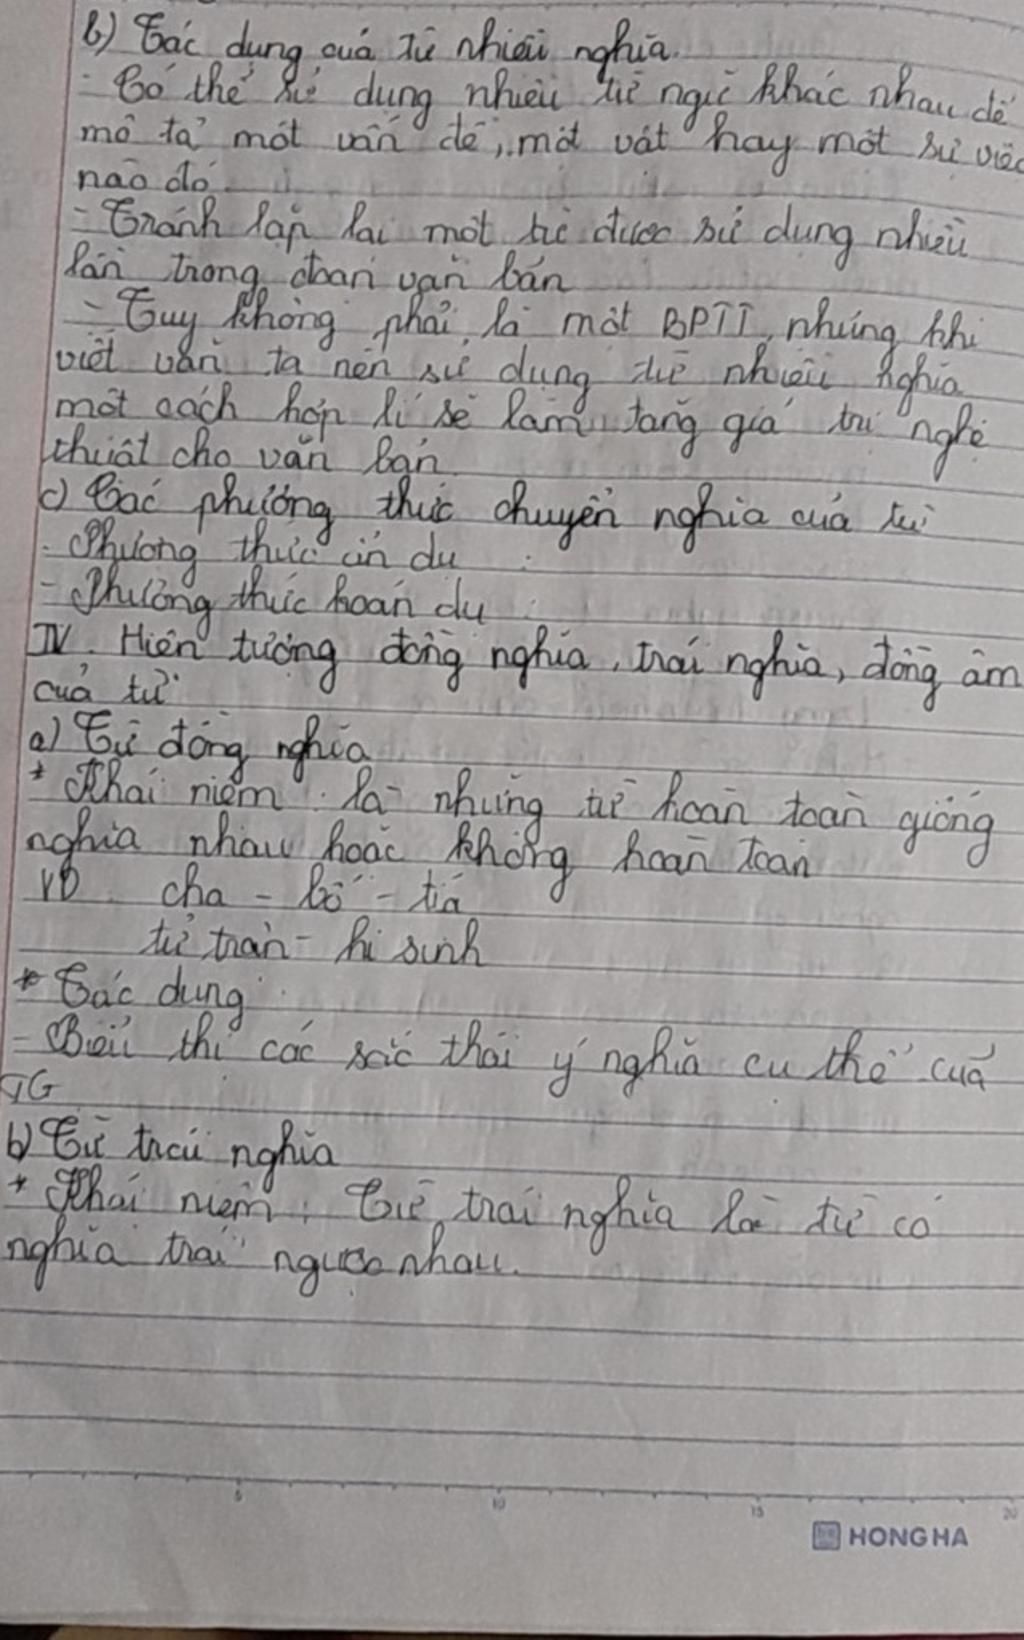 b) Tác dụng của từ nhiều nghĩa.
- Có thể sử dụng nhiều từ ngữ khác nhau để
mô tả một vấn đề, một vật hay một sự việc
nào đó
- Tránh lặp lại một từ được sử dụng nhiều
lần trong đoạn văn bản
- Tuy không phải là một BPTT, nhưng khi
viết văn ta nên sử dụng từ nhiều nghĩa
một cách hợp lí sẽ làm tăng giá trị nghệ
thuật cho văn bản
c) Các phương thức chuyển nghĩa của từ
- Phương thức ẩn dụ :
- Phương thức hoán dụ :
IV. Hiện tượng đồng nghĩa, trái nghĩa, đồng âm
của từ
a) Từ đồng nghĩa
* Khái niệm : là những từ hoàn toàn giống
nghĩa nhau hoặc không hoàn toàn
VD cha - bố - tía
tử trận - hi sinh
* Tác dụng
- Biểu thị các sắc thái ý nghĩa cụ thể của
TG
b) Từ trái nghĩa
* Khái niệm : Từ trái nghĩa là từ có
nghĩa trái ngược nhau.
5 10 15 20
HONG HA